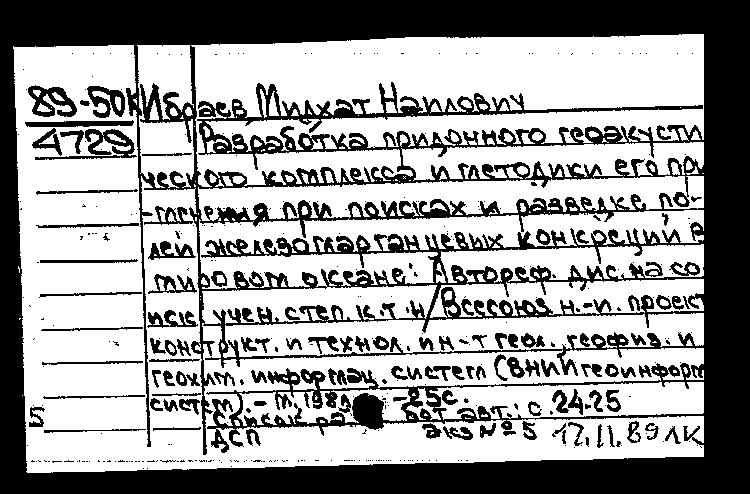 89-50к Ибраев Милхат Наилович
4729 Разработка придонного геоакусти
ческого комплекса и методики его при
-менения при поисках и разведке по-
лей железомарганцевых конкреций в
мировом океане: Автореф. дис. на со
иск. учен. степ. к.т.н / Всесоюз. н.-и. проект
конструкт. и технол. ин-т геол., геофиз. и
геохим. информац. систем (ВНИИгеоинформ
систем). – М., -25с.
5 Список бот авт.: с. 24-25
ДСП экз № 5 17.11.89 ЛК